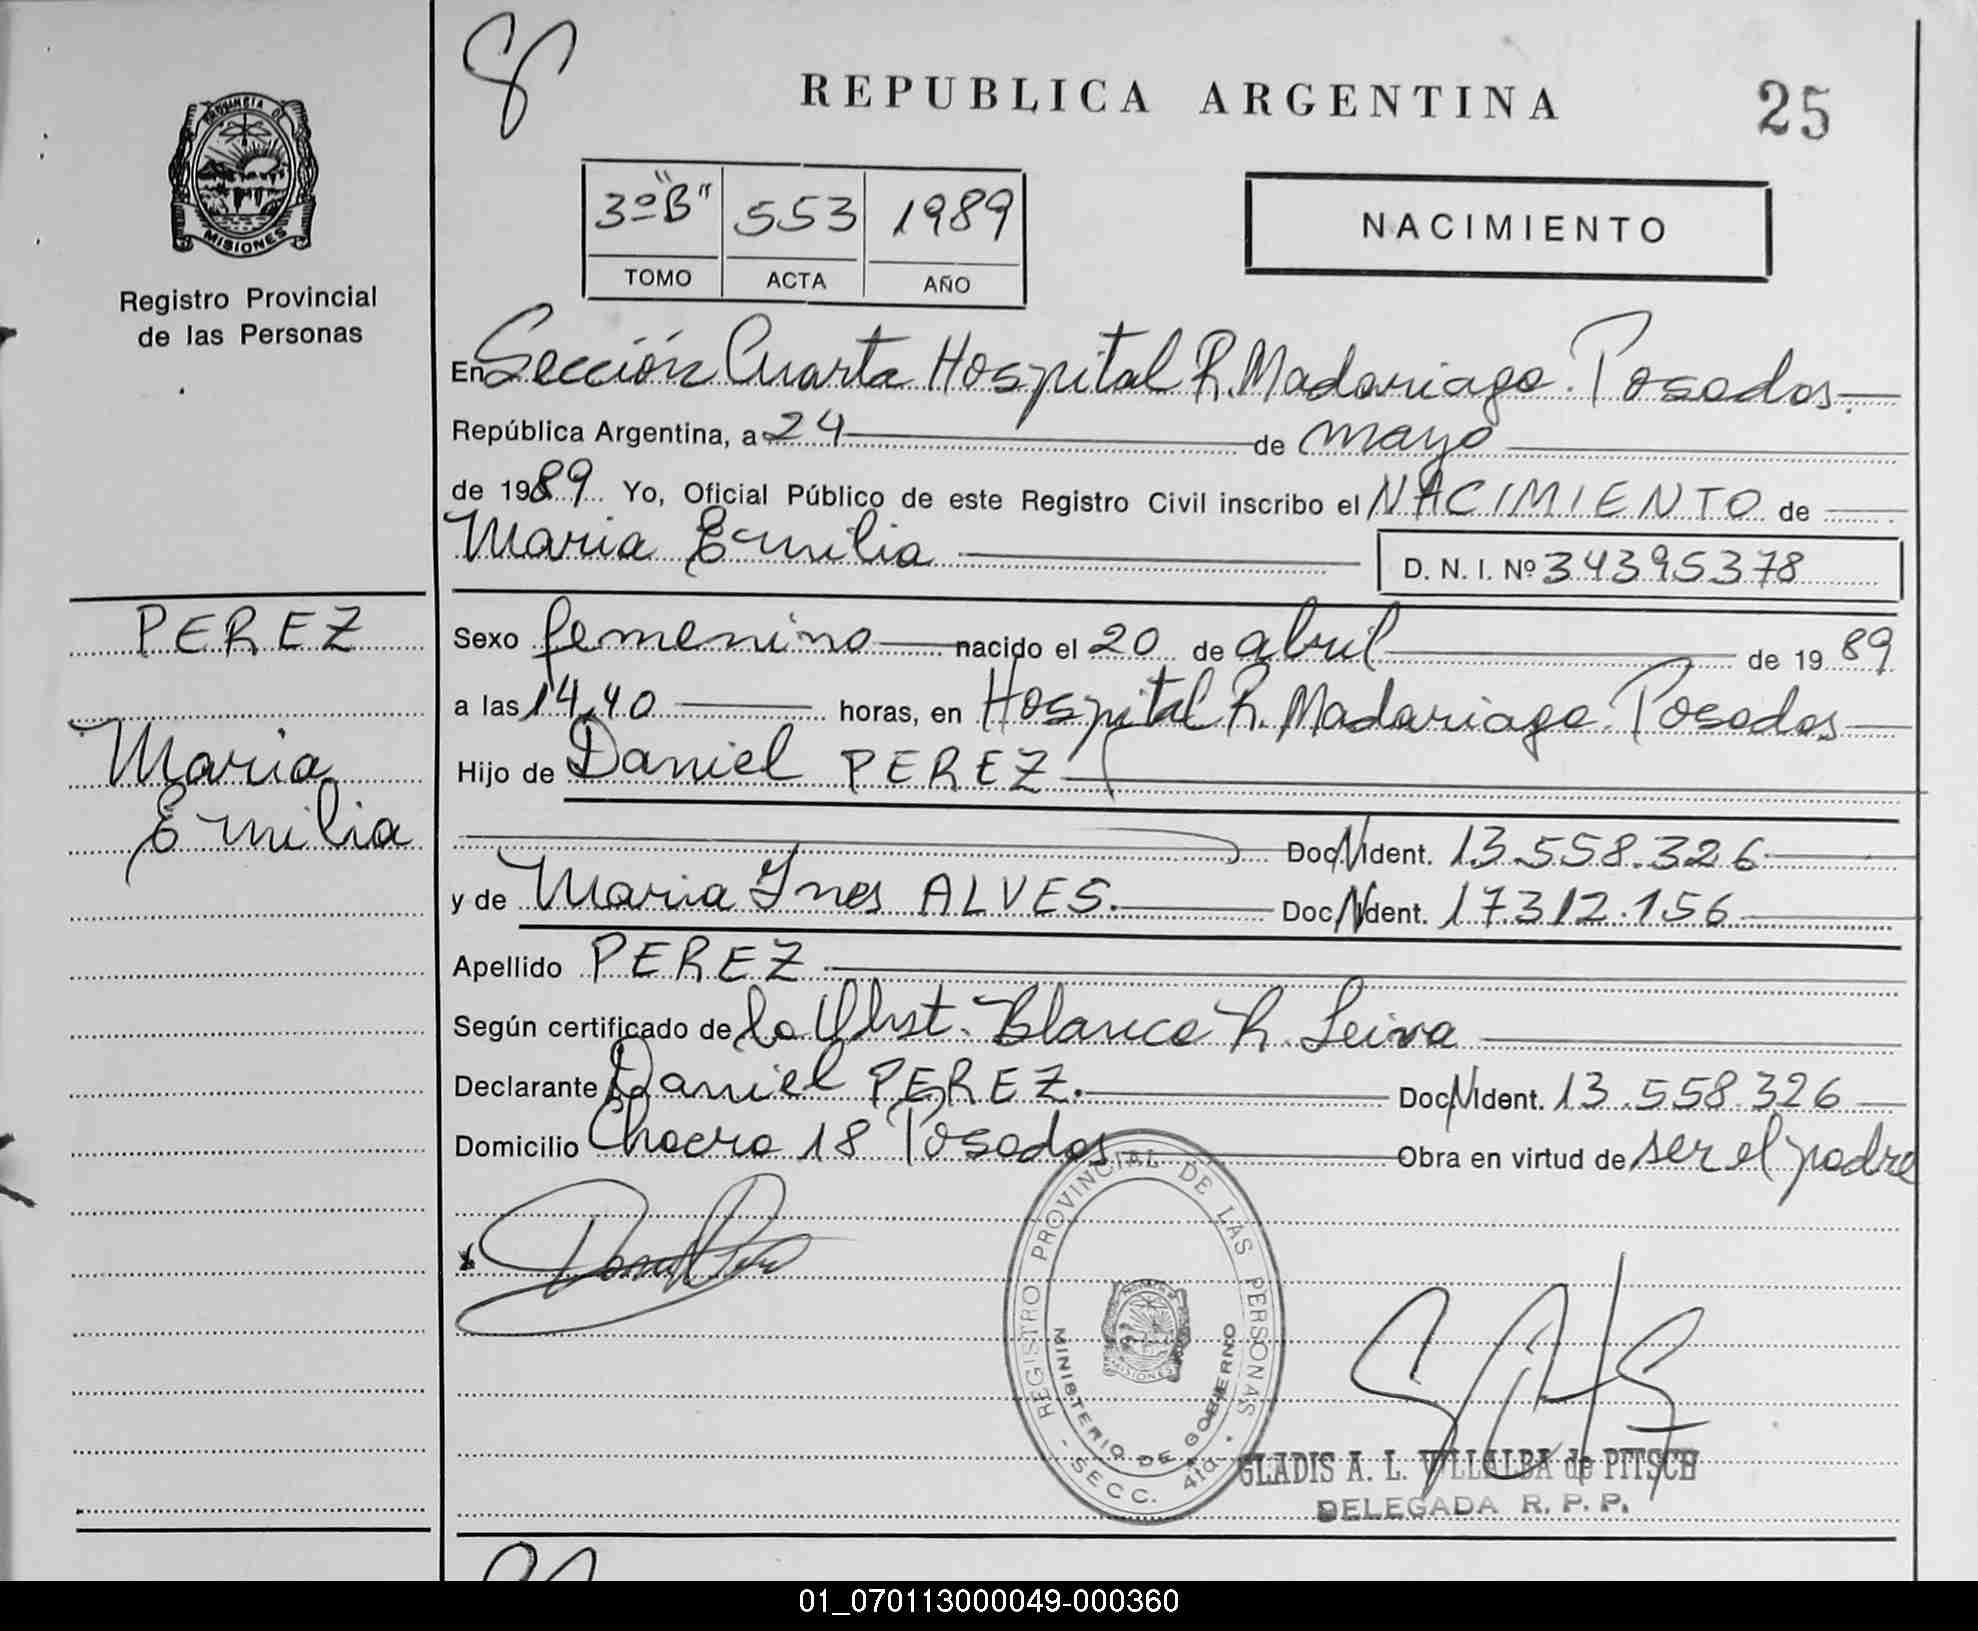 REPUBLICA ARGENTINA
25
PROVINCIA D
MISIONES
Registro Provincial
de las Personas
3º "B" 553 1989
TOMO ACTA AÑO
NACIMIENTO
En Sección Cuarta Hospital R. Madariaga. Posadas.
República Argentina, a 24 de mayo
de 1989 Yo, Oficial Público de este Registro Civil inscribo el NACIMIENTO de
Maria Emilia D. N. I. Nº 34395378
PEREZ
Maria
Emilia
Sexo femenino nacido el 20 de abril de 1989
a las 14,40 horas, en Hospital R. Madariaga. Posadas
Hijo de Daniel PEREZ
Doc. N Ident. 13.558.326
y de Maria Ines ALVES. Doc. N Ident. 17.312.156
Apellido PEREZ
Según certificado de la Obst. Blanca R. Leiva
Declarante Daniel PEREZ. Doc. N Ident. 13.558.326
Domicilio Chacra 18 Posadas Obra en virtud de ser el padre
REGISTRO PROVINCIAL DE LAS PERSONAS
MINISTERIO DE GOBIERNO
MISIONES
- SECC. 4ta. -
GLADIS A. L. VILLALBA de PITSCH
DELEGADA R. P. P.
01_070113000049-000360